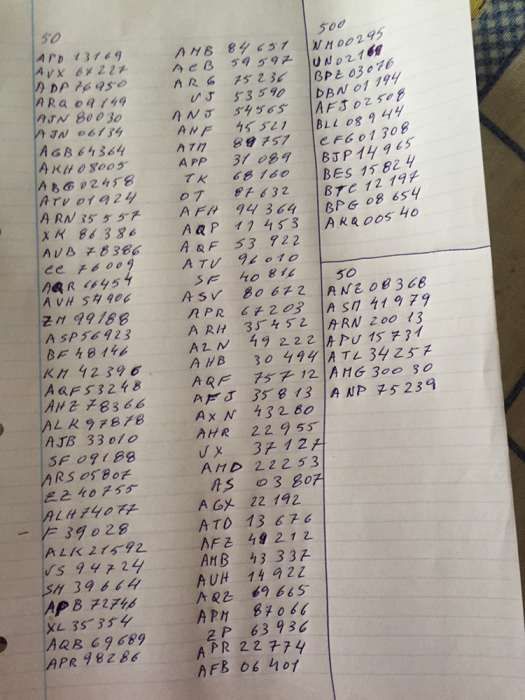 50
APD 13169
AVX 67227
ADP 76950
ARQ 09149
AJN 80030
AJN 06134
AGB 64364
AKH 08005
ABG 02458
ATU 01924
ARN 35557
XK 86386
AUB 78386
CC 76009
AQR 66454
AVH 54906
ZM 99188
ASP 56923
BF 48146
KM 42396
AQF 53248
AHZ 78366
ALK 97878
AJB 33010
SF 09188
ARS 05807
EZ 40755
ALH 74077
F 39028
ALK 21592
VS 94724
SM 39664
APB 72746
XL 35354
AQB 69689
APR 98286
AMB 84651
ACB 59597
ARG 75236
VJ 53590
ANJ 54565
AHF 45521
ATM 89751
APP 31089
TK 68160
OT 87632
AFH 94364
AQP 17453
AQF 53922
ATU 96010
SF 40816
ASV 80672
APR 67203
ARH 35452
AZN 49222
AHB 30494
AQF 75712
AFJ 35813
AXN 43280
AHR 22955
VX 37127
AMD 22253
AS 03807
AGX 22192
ATD 13676
AFZ 49212
AMB 43337
AUH 14922
AQZ 69665
APM 87066
ZP 63936
APR 22774
AFB 06401
500
NM00295
UN02169
BPZ03076
DBN01194
AFJ02508
BLL08944
CFG01308
BJP14965
BES15824
BTC12197
BPG08654
AKQ00540
50
ANZ08368
ASM 41979
ARN 20013
APU 15731
ATL 34257
AMG 30030
ANP 75239